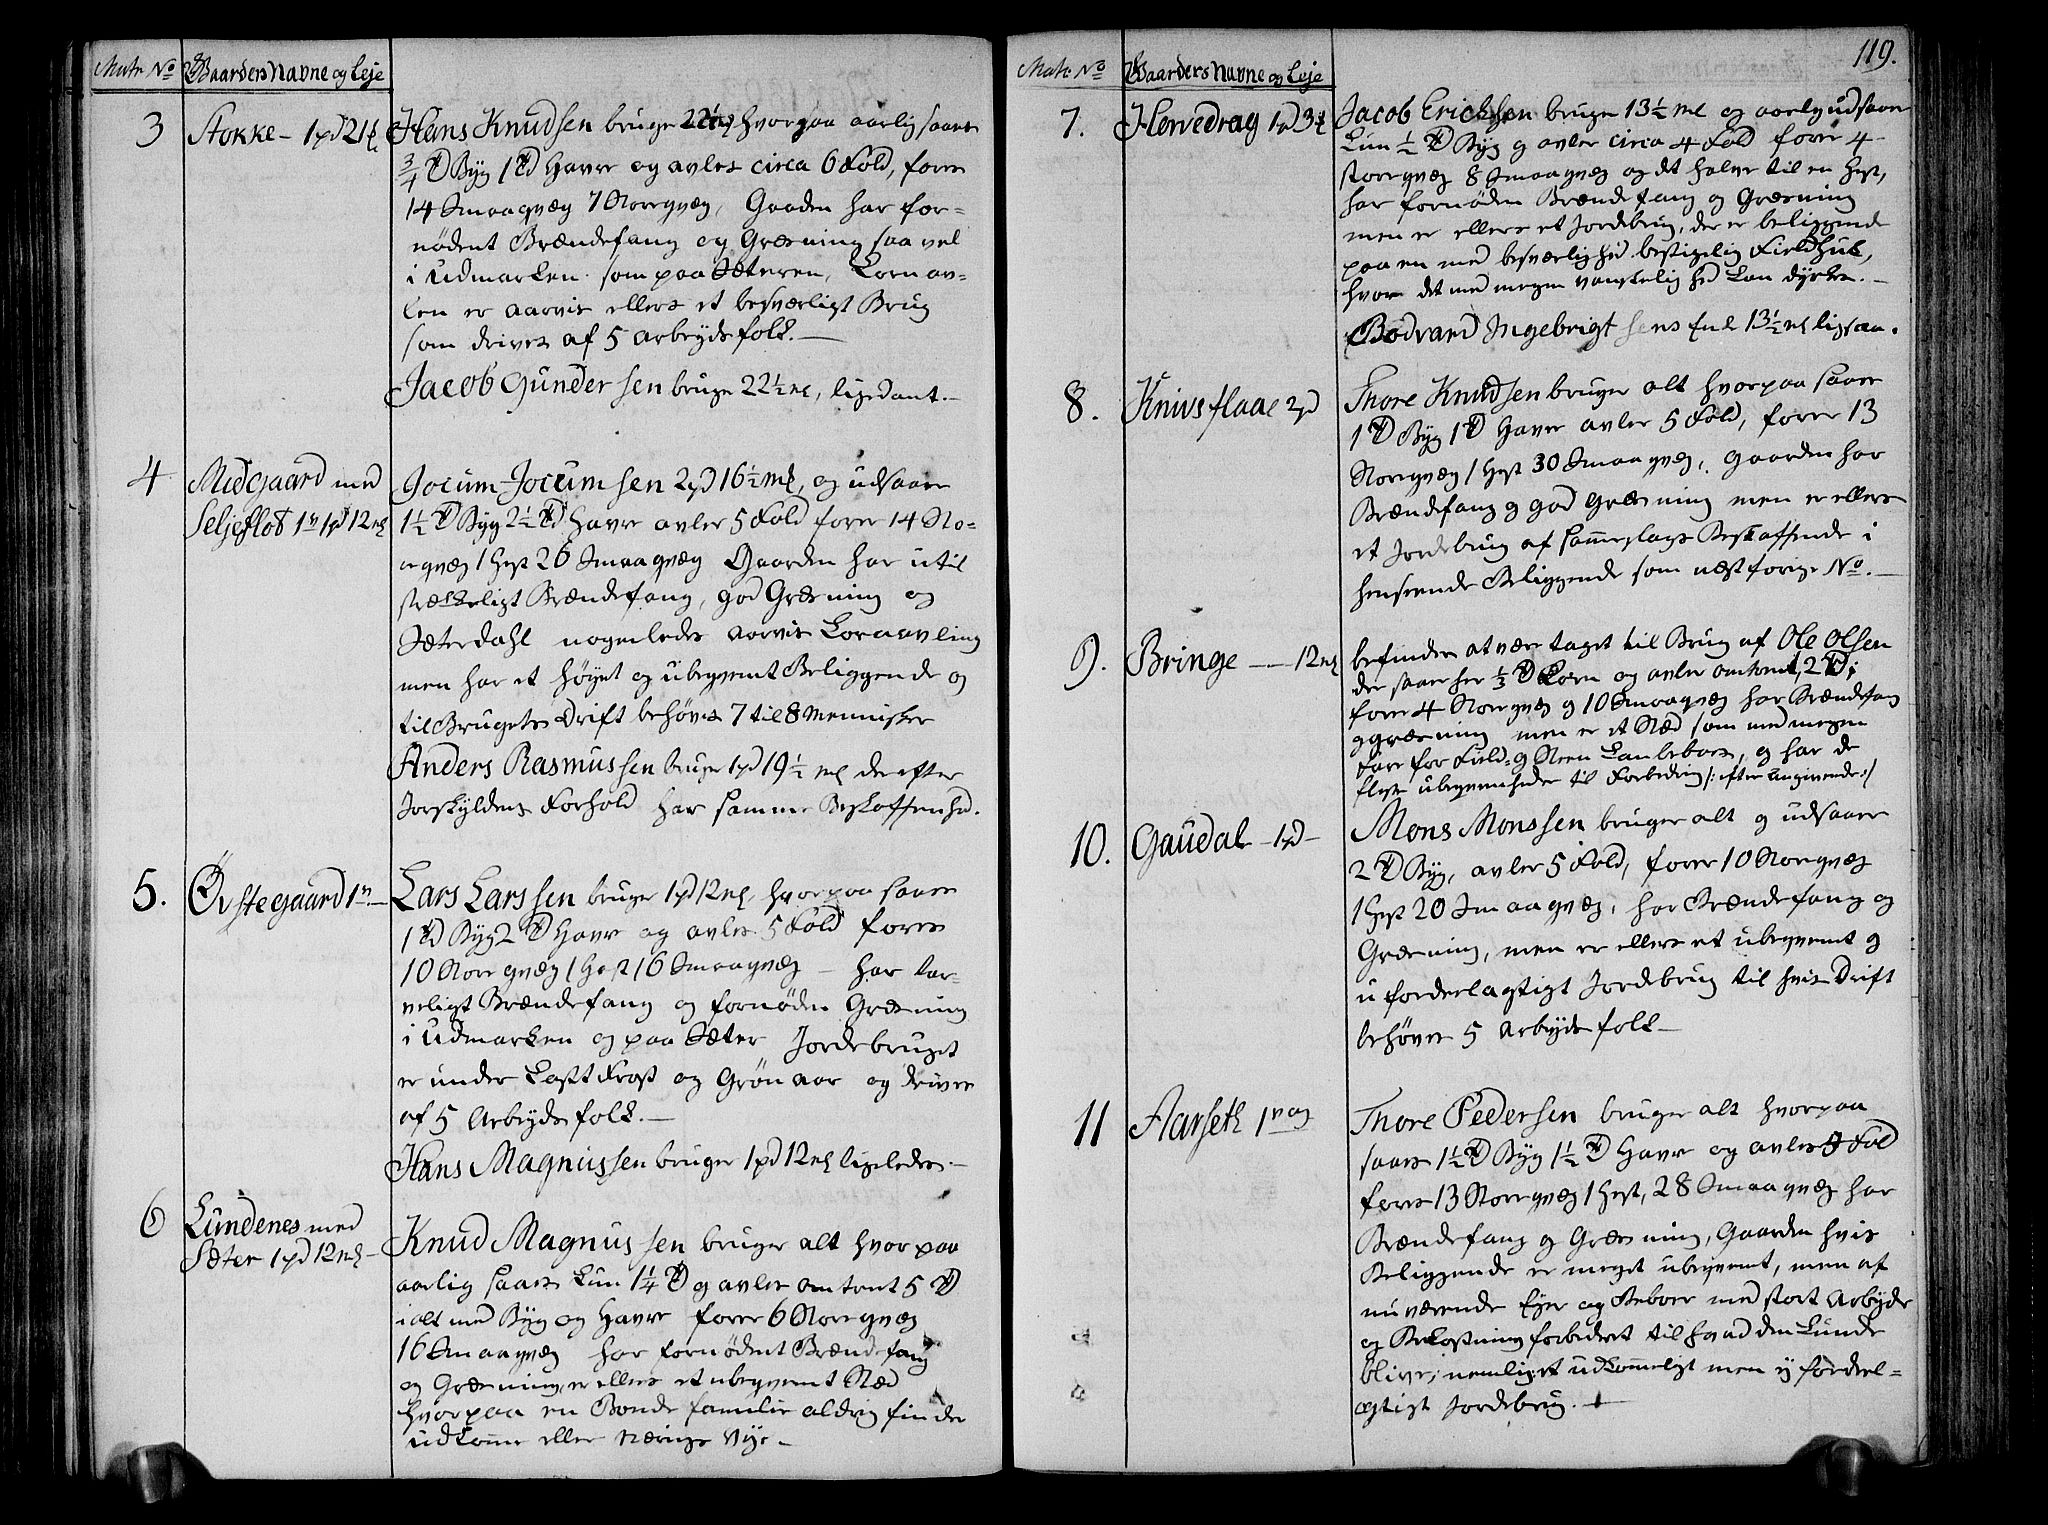 Matr No Gaardens Navne og Leje
3 Stokke - 1 pd 21 mk
Hans Knudsen bruger 22½ mk hvorpaa aarlig saaes
¾ Td Byg 1 Td Havre og avles circa 6 Fold, foræ
14 Smaaqvæg 7 Storeqvæg, Gaarden har for=
nødent Brændefang og Græsning saa vel
i Udmarken som paa Sæteren, Korn av=
len er aarvis ellers et besværligt Brug
som drives af 5 Arbeyds folk.—
Jacob Gundersen bruger 22½ mk, ligedant.—
4 Midgaard med
Seljeflot 1 v 1 pd 12 mk
Jocum Jocumsen 2 pd 16½ mk, og udsaaer
1½ Td Byg 2½ Td Havre avler 5 Fold forer 14 Sto=
reqvæg 1 Hest 26 Smaaqvæg Gaarden har util
strækkeligt Brændefang, god Græsning og
Sæterdahl nogenledes aarvis Kornavling
men har et høyet og ubeqvemt Beliggende og
til Brugets Drift behøves 7 til 8 Mennisker
Anders Rasmussen bruger 1 pd 19½ mk der efter
Jorskyldens Forhold har samme Beskaffenhed.
5. Øvstegaard 1 v.—
Lars Larssen bruger 1 pd 12 mk, hvorpaa saaes
1 Td Byg 2 Td Havre og avles 5 Fold fores
10 Storeqvæg 1 Hest 16 Smaaqvæg — har tar=
veligt Brændefang og fornøden Græsning
i Udmarken og paa Sæter Jordebruget
er under Kast Frost og Grønaar og drives
af 5 Arbeyds folk.—
Hans Magnussen bruger 1 pd 12 mk ligeledes.—
6 Lundenes med
Sæter 1 pd 12 mk—
Knud Magnussen bruger alt hvorpaa
aarlig saaes kun 1¼ Td og avles omtrent 5 Td
i alt med Byg og Havre forer 6 Storeqvæg
16 Smaaqvæg har fornødent Brændefang
og Græsning, er ellers et ubeqvemt Stæd
hvorpaa en Bonde familie aldrig finder
udkomme eller nærings Vye.—
119.
Matr No Gaardens Navne og Leje
7. Hervedrag 1 pd 3 mk
Jacob Ericksen bruger 13½ mk og aarlig udsaaer
kun ½ Td Byg og avler circa 4 Fold forer 4
storeqvæg 8 Smaaqvæg og det halve til en Hest,
har fornøden Brændefang og Græsning
men er ellers et Jordebrug, der er beliggende
paa en med besværlighed bestigelig Fieldhul,
hvor det med megen vanskelighed kan dyrkes.—
Bodvard Ingebrigtsens Enke 13½ mk ligesaa.
8. Knivsflaae 2 pd
Thore Knudsen bruger alt hvorpaa saaes
1 Td Byg 1 Td Havre avler 5 Fold, forer 13
Storeqvæg 1 Hest 30 Smaaqvæg, gaarden har
Brændefang og god Græsning men er ellers
et Jordebrug af sammeslags Beskaffende i
henseende Beliggende som næstforige No.—
9. Bringe —— 12 mk
befindes at være taget til Brug af Ole Olsen
der saaer her ⅓ Td Korn og avler omtrent 2 Td;
forer 4 Storeqvæg og 10 Smaaqvæg har Brændefang
og græsning men er et Stæd som med megen
Fare for Field= og Steen kan beboes, og har de
fleste ubeqvemheder til Forbedring /: efter angivende :/
10. Gaudal — 1 pd —
Mons Monssen bruger alt og udsaaer
2 Td Byg, avler 5 Fold, forer 10 Storeqvæg
1 Hest 20 Smaaqvæg, har Brændefang og
Græsning, men er ellers et ubeqvemt og
ufordeelagtigt Jordebrug til hvis Drift
behøves 5 Arbeyds folk—
11 Aarseth 1 v og
Thore Pedersen bruger alt hvorpaa
saaes 1½ Td Byg 1½ Td Havre og avles 5 Fold
fores 13 Storeqvæg 1 Hest, 28 Smaaqvæg har
Brændefang og Græsning, Gaarden hvis
Beliggende er meget ubeqvemt, men af
nuværende Ejer og Beboer med stort Arbeyde
og Bekostning forbedret til hvad den kunde
blive; nemlig et udkommeligt men ey fordeel=
agtigt Jordebrug.—